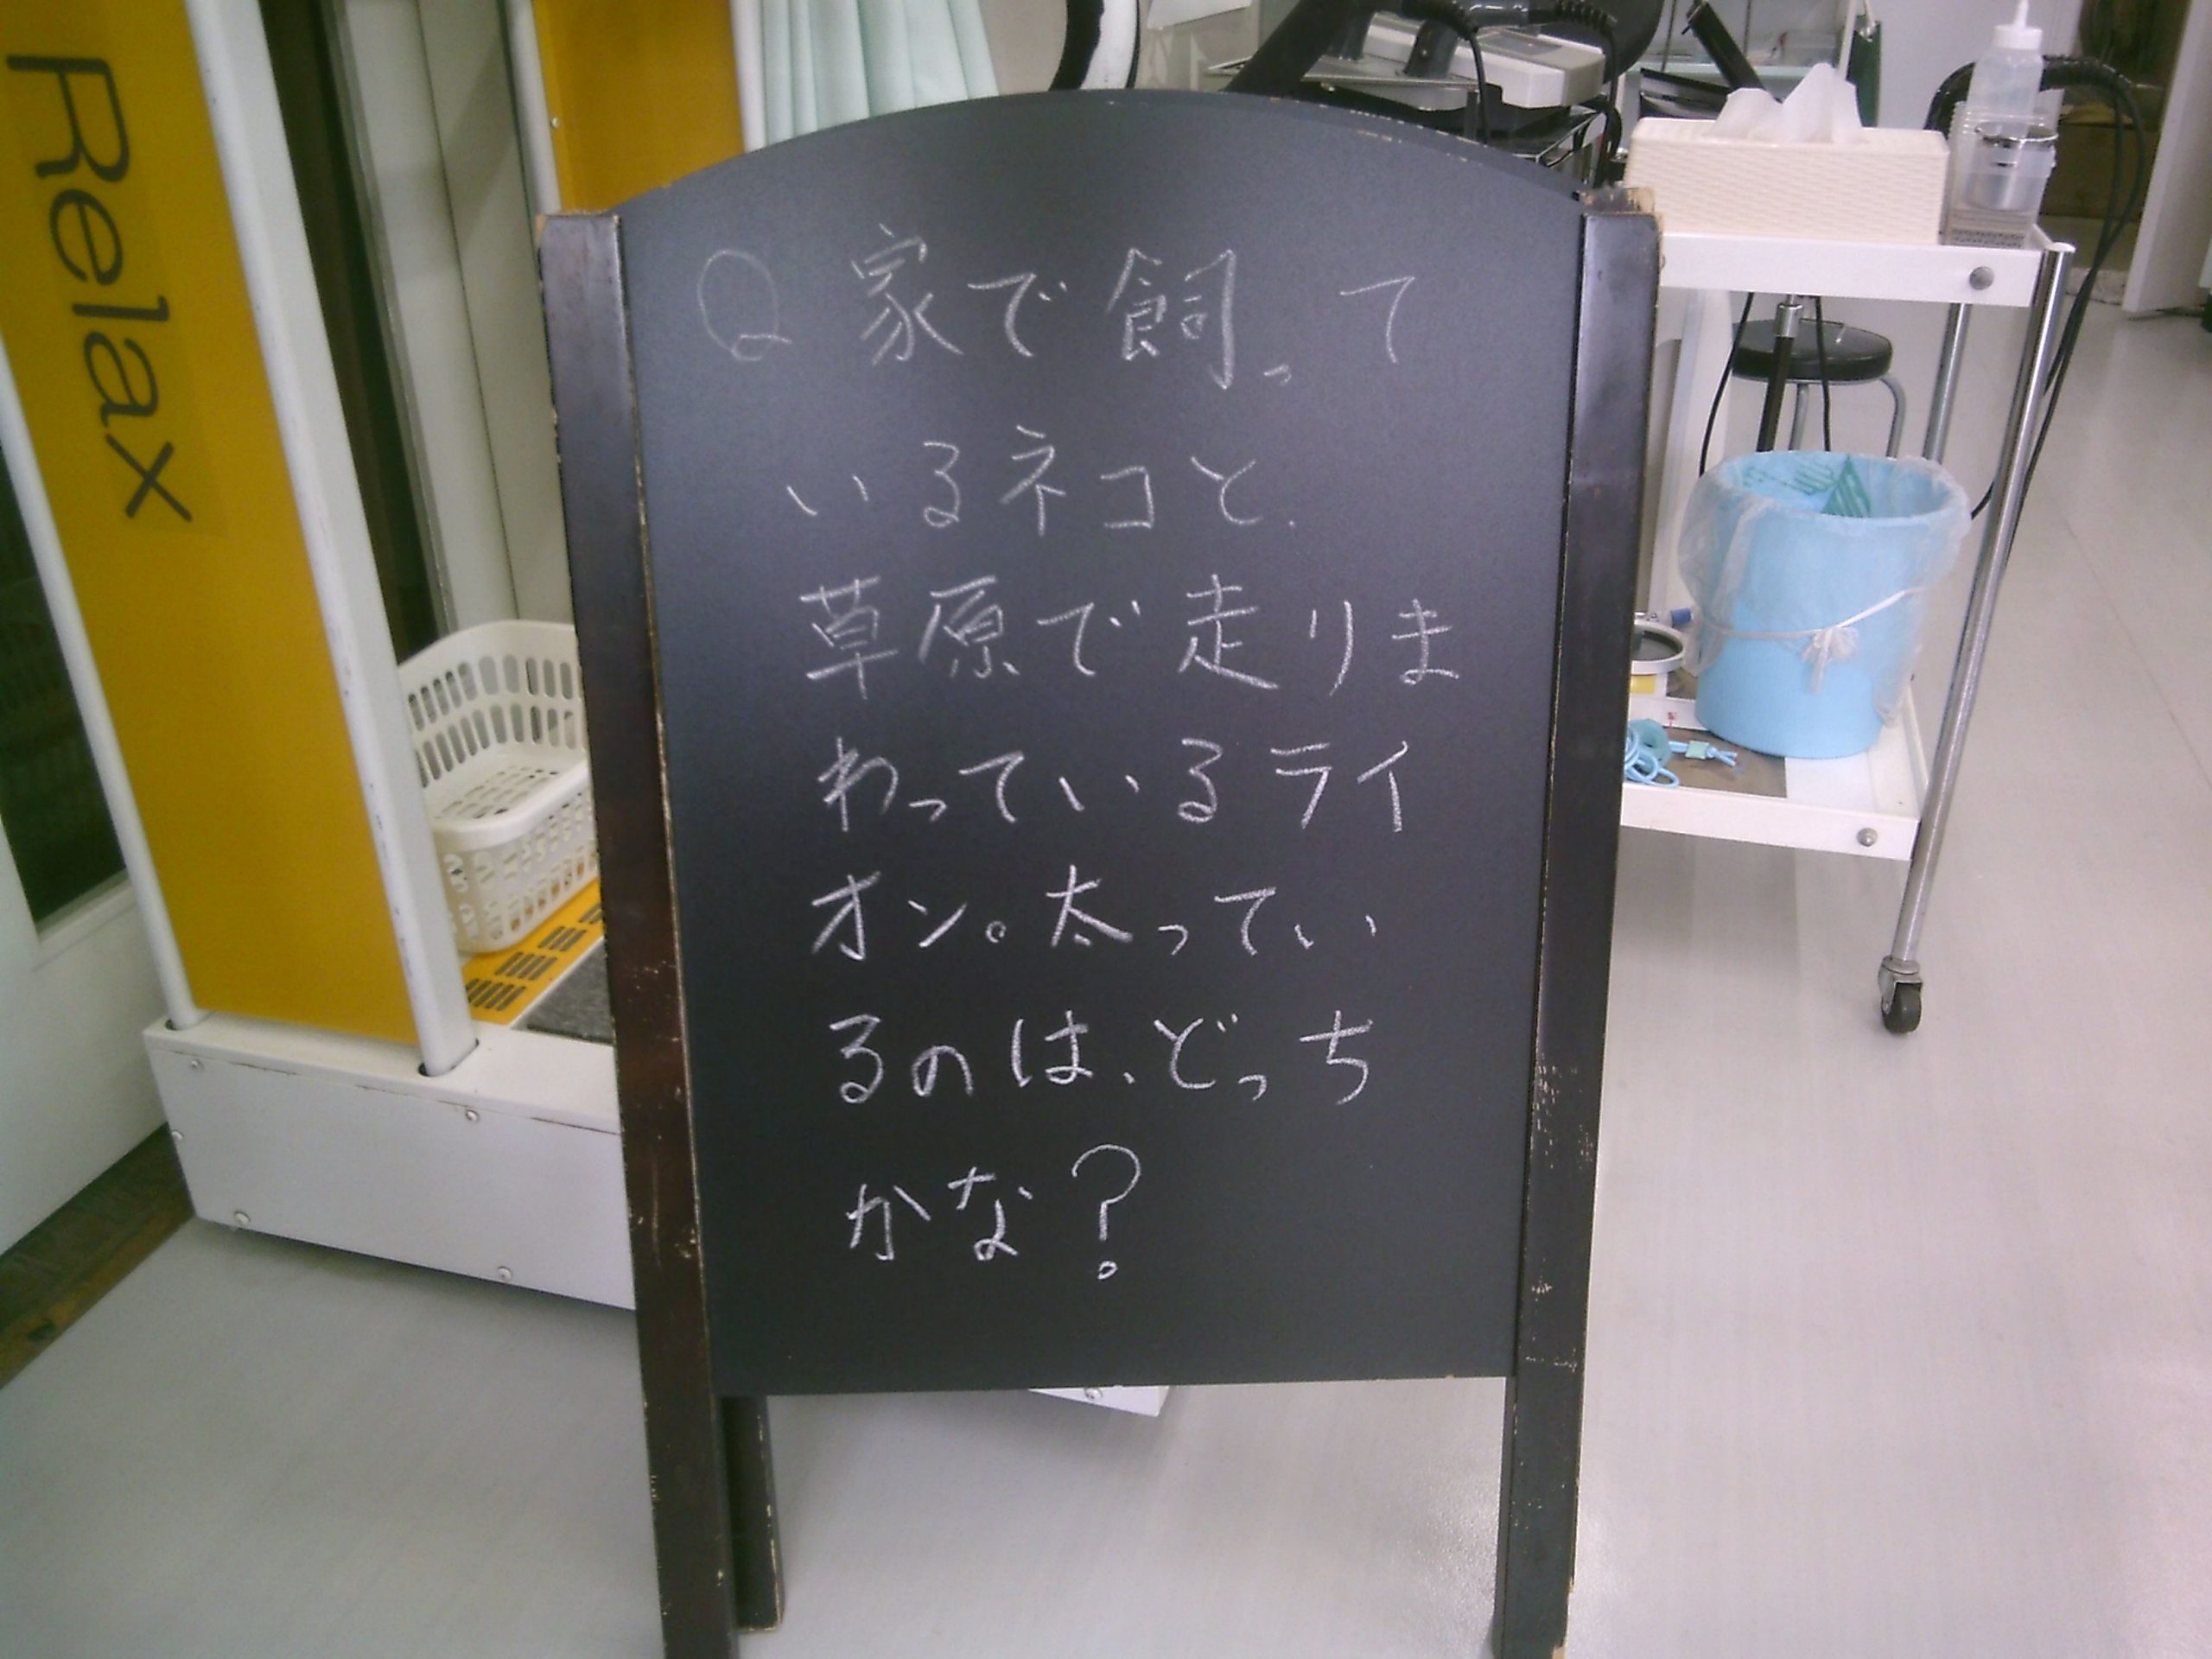 Relax
Q 家で飼って
いるネコと、
草原で走りま
わっているライ
オン。太ってい
るのは、どっち
かな?